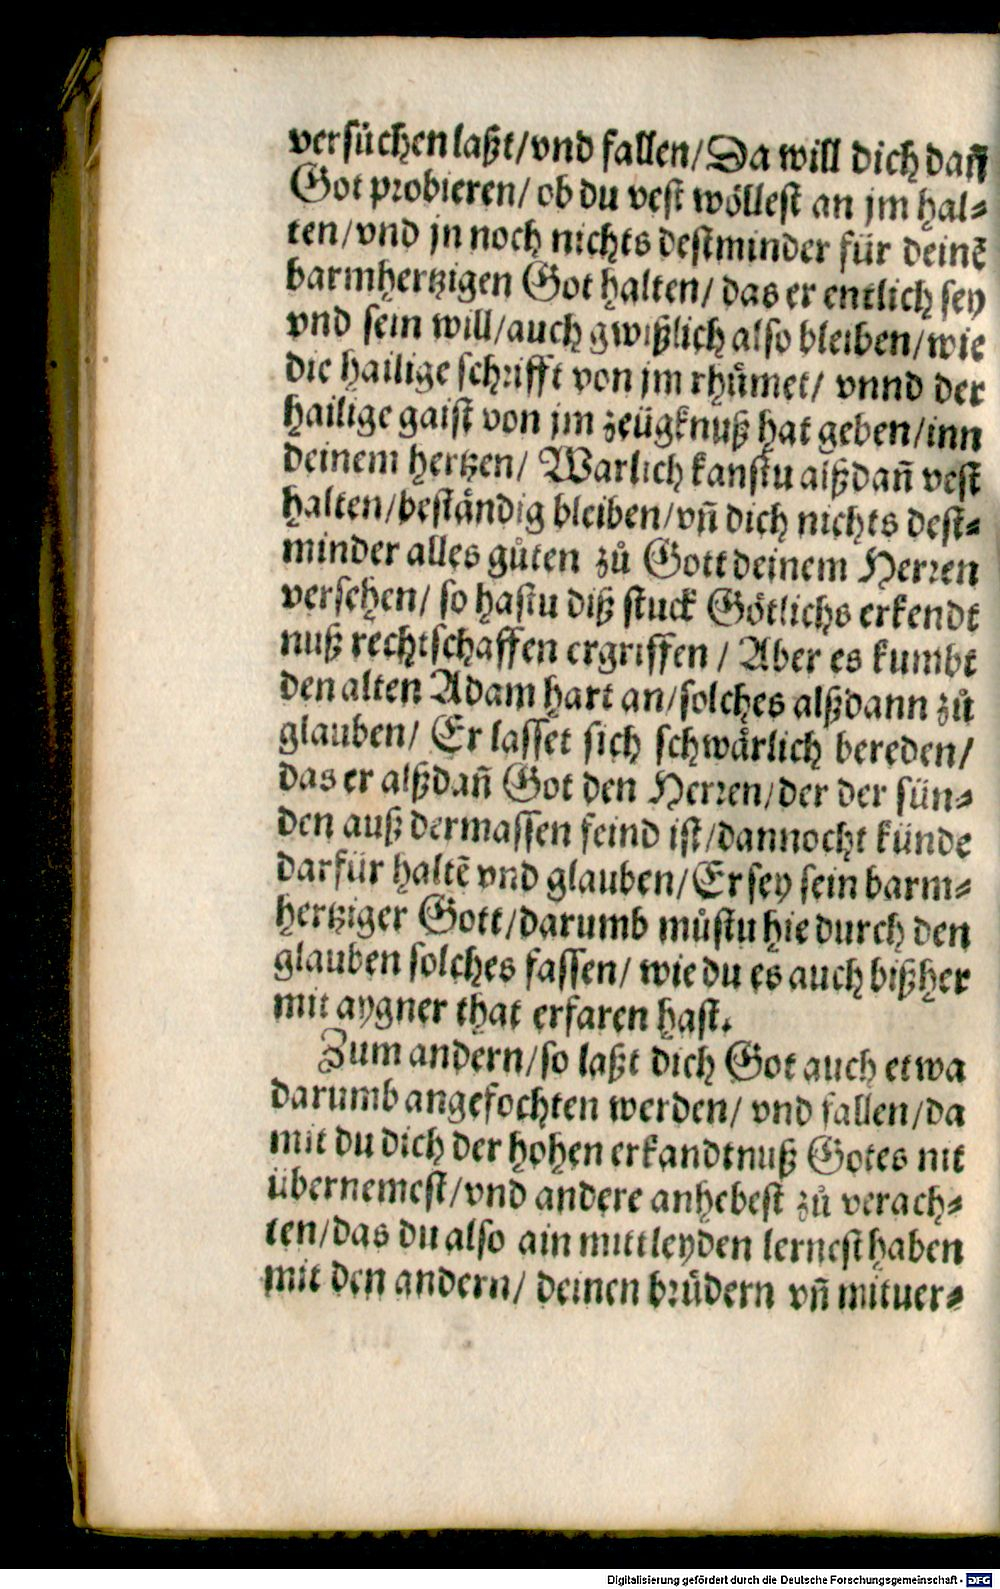 versůchen laßt/vnd fallen/Da will dich dañ
Got probieren/ ob du vest wöllest an jm hal⸗
ten/vnd jn noch nichts destminder für deinē
barmhertzigen Got halten/ das er entlich sey
vnd sein will/auch gwißlich also bleiben/wie
die hailige schrifft von jm rhůmet/ vnnd der
hailige gaist von jm zeügknuß hat geben/inn
deinem hertzen/ Warlich kanstu alßdañ vest
halten/beständig bleiben/vñ dich nichts dest⸗
minder alles gůten zů Gott deinem Herren
versehen/ so hastu diß stuck Götlichs erkendt
nuß rechtschaffen ergriffen / Aber es kumbt
den alten Adam hart an/solches alßdann zů
glauben/ Er lasset sich schwärlich bereden/
das er alßdañ Got den Herren/der der sün⸗
den auß dermassen feind ist/dannocht künde
darfür haltē vnd glauben/Er sey sein barm⸗
hertziger Gott/darumb můstu hie durch den
glauben solches fassen/ wie du es auch bißher
mit aygner that erfaren hast.
Zum andern/so laßt dich Got auch etwa
darumb angefochten werden/ vnd fallen/da
mit du dich der hohen erkandtnuß Gotes nit
übernemest/vnd andere anhebest zů verach⸗
ten/das du also ain mittleyden lernest haben
mit den andern/ deinen brůdern vñ mituer⸗
Digitalisierung gefördert durch die Deutsche Forschungsgemeinschaft - DFG